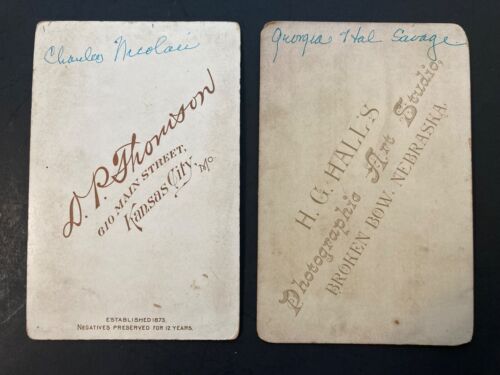 Charles Nicolai
D. P. Thomson
610 MAIN STREET,
Kansas City, Mo
ESTABLISHED 1873.
NEGATIVES PRESERVED FOR 12 YEARS.
Georgia Hal Savage
H. G. HALL'S
Photographic Art Studio,
BROKEN BOW, NEBRASKA.